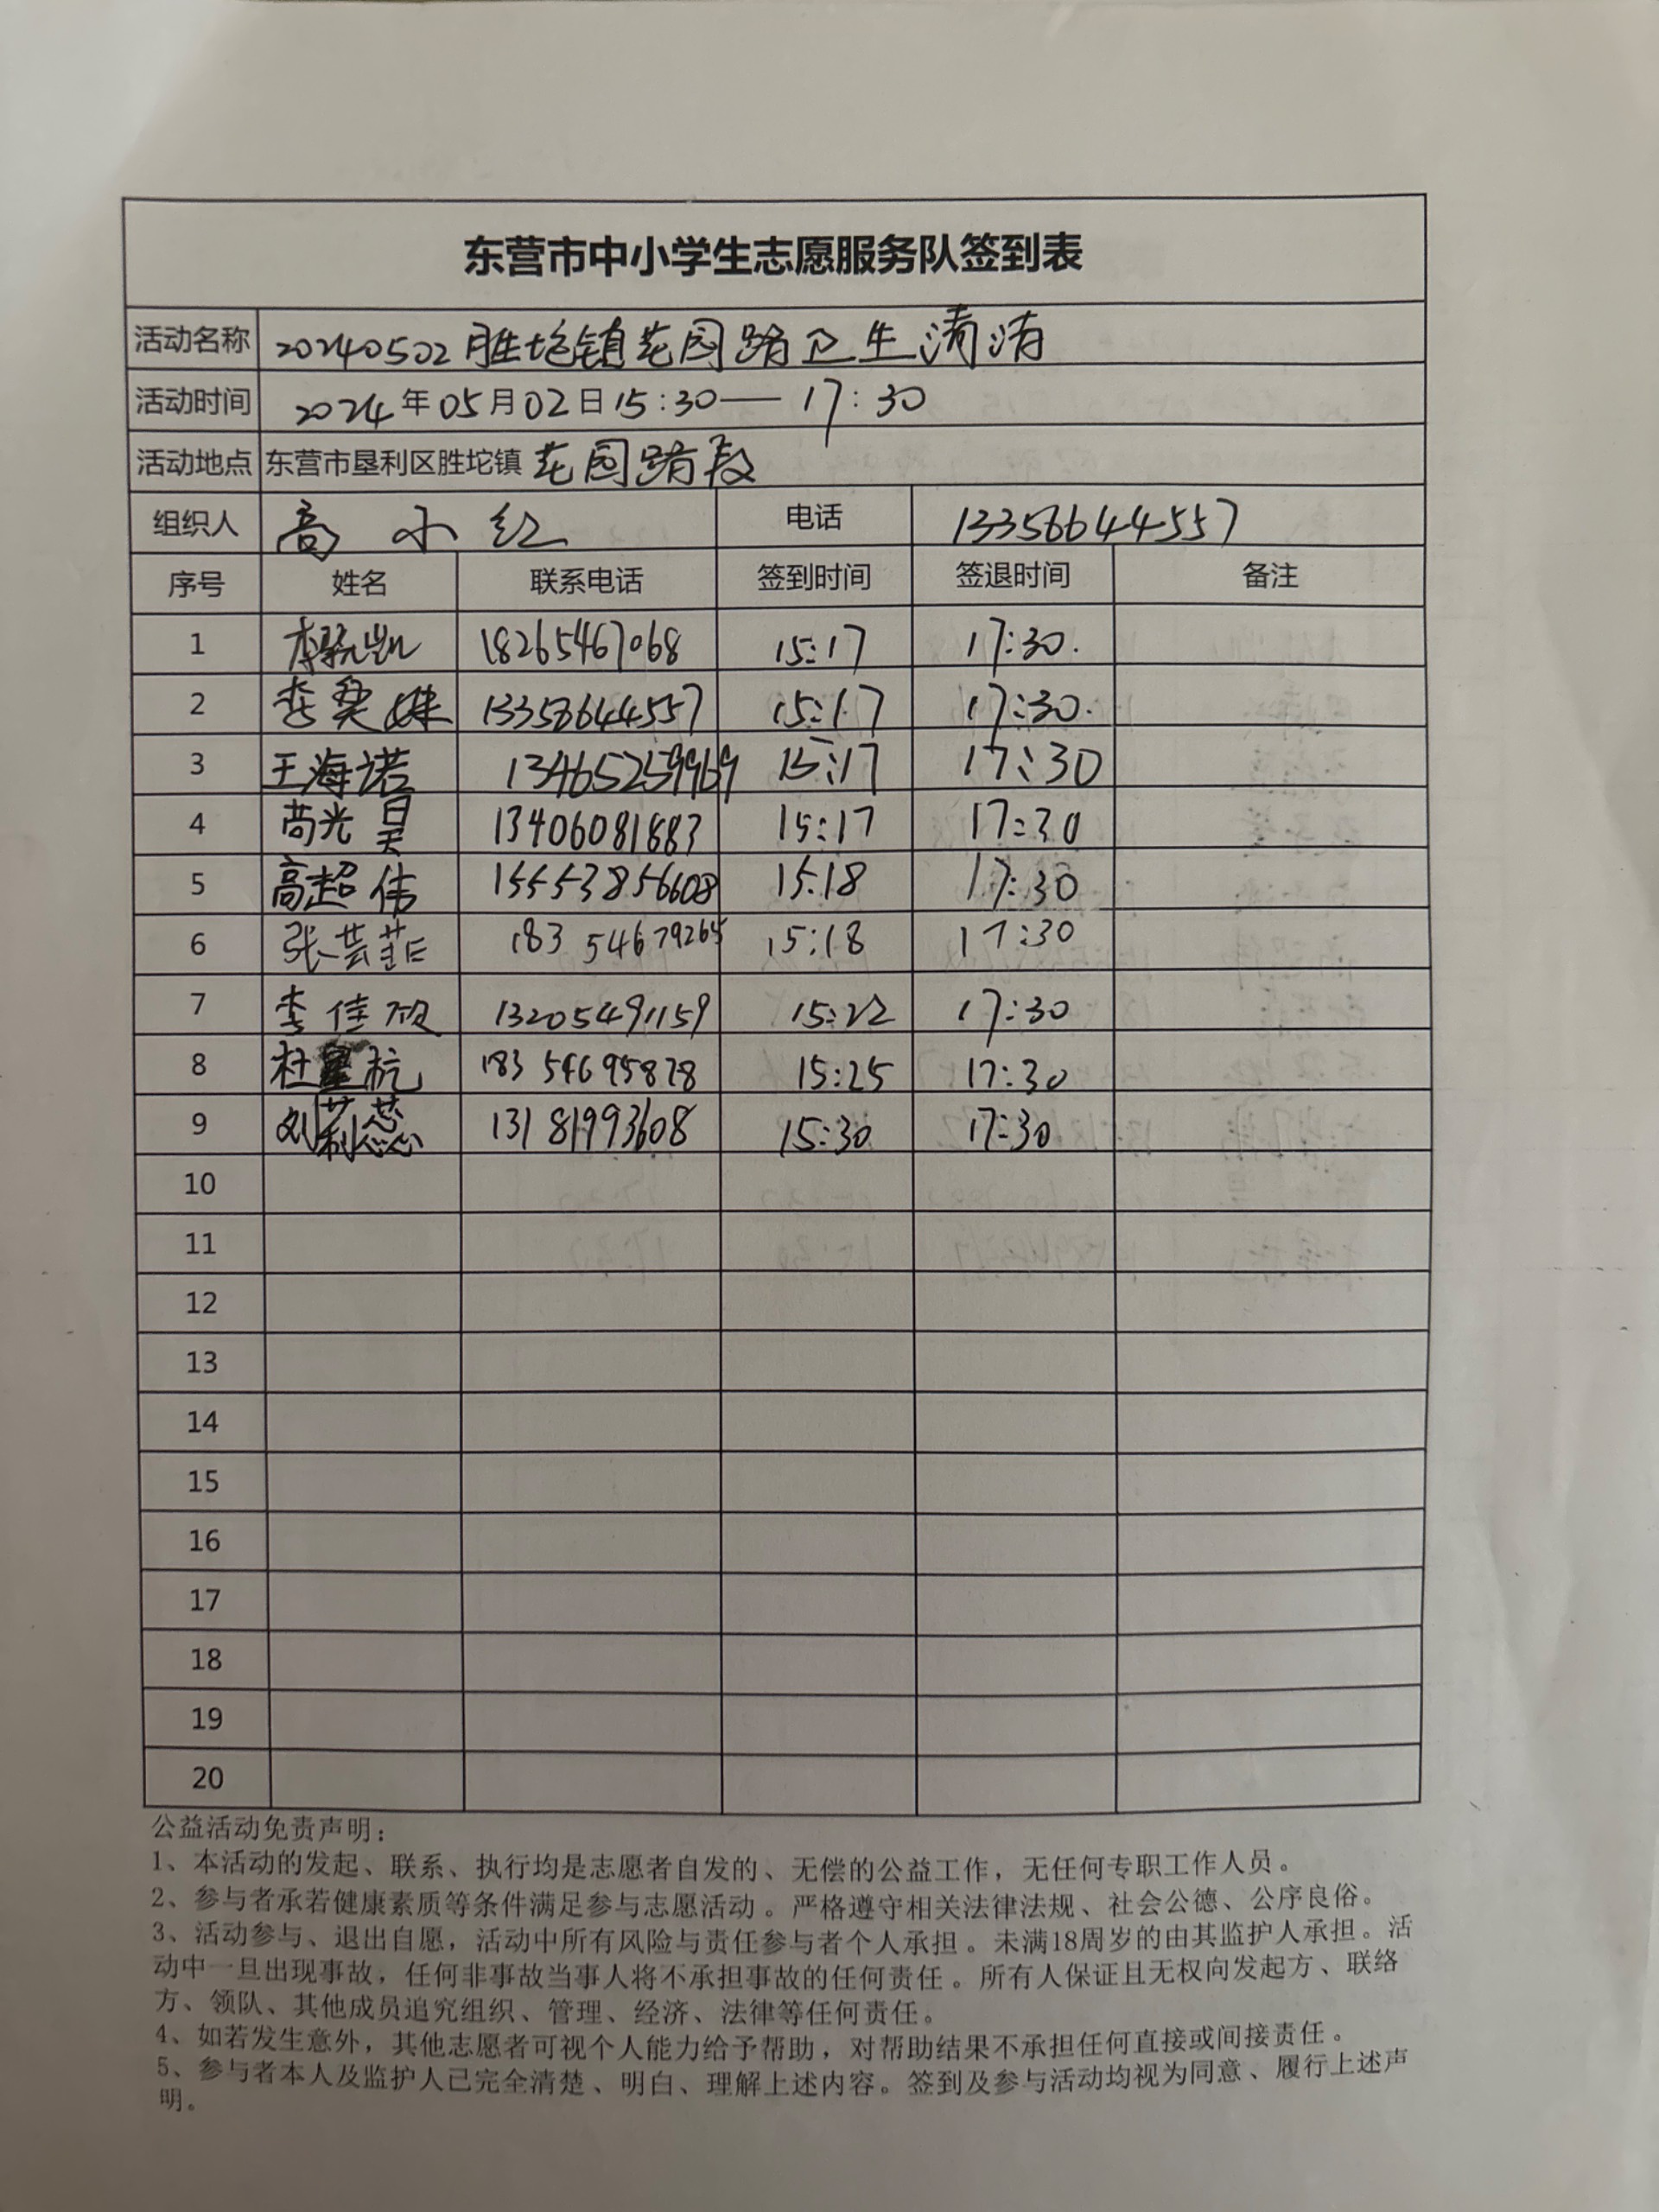 东营市中小学生志愿服务队签到表
活动名称 20240502胜坨镇花园路卫生清洁
活动时间 2024年05月02日15:30—17:30
活动地点 东营市垦利区胜坨镇 花园路段
组织人 高小红 电话 13356644557
序号 姓名 联系电话 签到时间 签退时间 备注
1 18265467068 15:17 17:30.
2 13356644557 15:17 17:30.
3 王海诺 13465259969 15:17 17:30
4 13406081883 15:17 17:30
5 高超伟 15553856608 15:18 17:30
6 张芸菲 18354679265 15:18 17:30
7 李佳 13205491159 15:22 17:30
8 杜星杭 18354695878 15:25 17:30
9 刘 13181993608 15:30 17:30
10
11
12
13
14
15
16
17
18
19
20
公益活动免责声明：
1、本活动的发起、联系、执行均是志愿者自发的、无偿的公益工作，无任何专职工作人员。
2、参与者承若健康素质等条件满足参与志愿活动。严格遵守相关法律法规、社会公德、公序良俗。
3、活动参与、退出自愿，活动中所有风险与责任参与者个人承担。未满18周岁的由其监护人承担。活
动中一旦出现事故，任何非事故当事人将不承担事故的任何责任。所有人保证且无权向发起方、联络
方、领队、其他成员追究组织、管理、经济、法律等任何责任。
4、如若发生意外，其他志愿者可视个人能力给予帮助，对帮助结果不承担任何直接或间接责任。
5、参与者本人及监护人已完全清楚、明白、理解上述内容。签到及参与活动均视为同意、履行上述声
明。